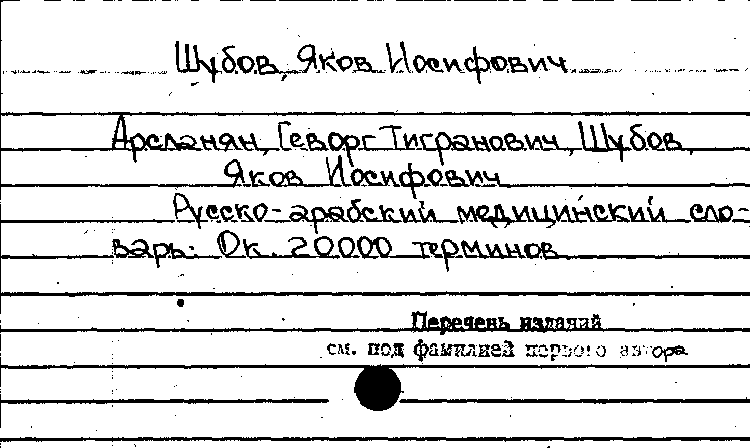 Шубов, Яков Иосифович
Арсланян, Геворг Тигранович, Шубов,
Яков Иосифович
Русско-арабский медицинский сло-
варь: Ок. 20000 терминов
Перечень изданий
см. под фамилией первого автора